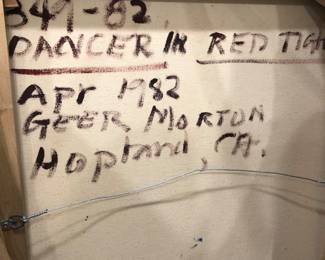 349-82
DANCER IN RED TIGH
Apr 1982
GEER MORTON
Hopland, CA.